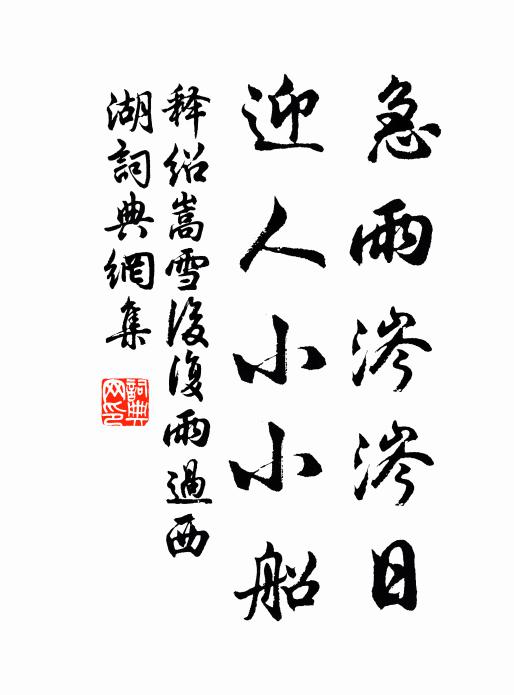 急雨涔涔日
迎人小小船
释绍嵩雪后復雨過西
湖詞典網集
詞典
网印